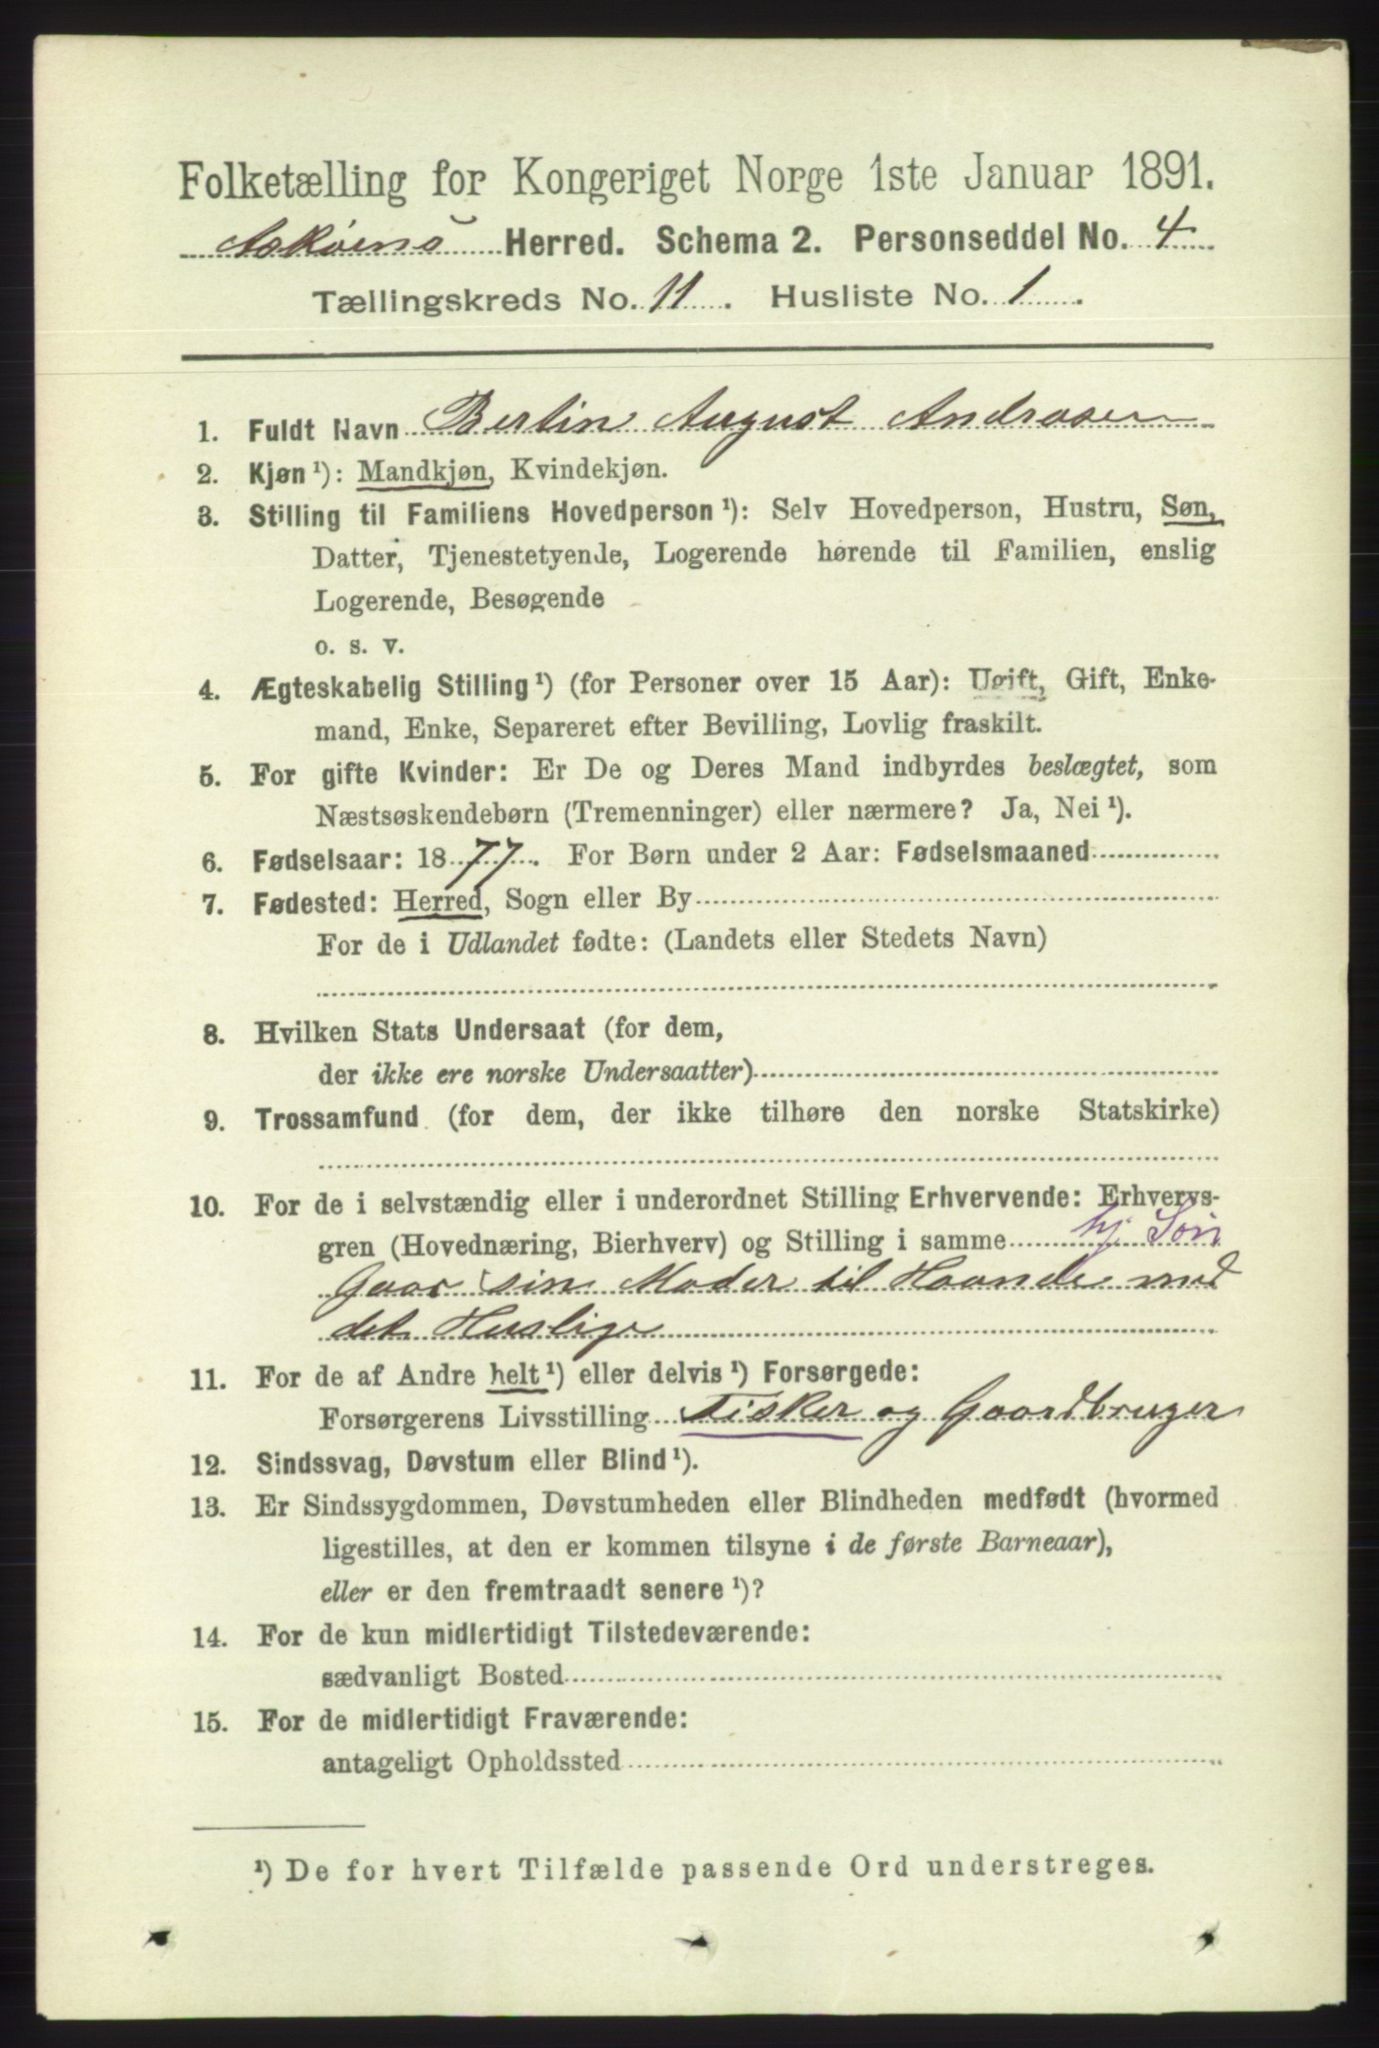 Folketælling for Kongeriget Norge 1ste Januar 1891.
Askøens Herred. Schema 2. Personseddel No. 4
Tællingskreds No. 11. Husliste No. 1.
1. Fuldt Navn Bertin August Andrasen
2. Kjøn¹): Mandkjøn, Kvindekjøn.
3. Stilling til Familiens Hovedperson¹): Selv Hovedperson, Hustru, Søn,
Datter, Tjenestetyende, Logerende hørende til Familien, enslig
Logerende, Besøgende
o. s. v.
4. Ægteskabelig Stilling¹) (for Personer over 15 Aar): Ugift, Gift, Enke-
mand, Enke, Separeret efter Bevilling, Lovlig fraskilt.
5. For gifte Kvinder: Er De og Deres Mand indbyrdes beslægtet, som
Næstsøskendebørn (Tremenninger) eller nærmere? Ja, Nei¹).
6. Fødselsaar: 1877. For Børn under 2 Aar: Fødselsmaaned
7. Fødested: Herred, Sogn eller By
For de i Udlandet fødte: (Landets eller Stedets Navn)
8. Hvilken Stats Undersaat (for dem,
der ikke ere norske Undersaatter)
9. Trossamfund (for dem, der ikke tilhøre den norske Statskirke)
10. For de i selvstændig eller i underordnet Stilling Erhvervende: Erhvervs-
gren (Hovednæring, Bierhverv) og Stilling i samme hj. Søn
Gaar sin Moder til Haande med
det Huslige
11. For de af Andre helt¹) eller delvis¹) Forsørgede:
Forsørgerens Livsstilling Fisker og Gaardbruger
12. Sindssvag, Døvstum eller Blind¹).
13. Er Sindssygdommen, Døvstumheden eller Blindheden medfødt (hvormed
ligestilles, at den er kommen tilsyne i de første Barneaar),
eller er den fremtraadt senere¹)?
14. For de kun midlertidigt Tilstedeværende:
sædvanligt Bosted
15. For de midlertidigt Fraværende:
antageligt Opholdssted
¹) De for hvert Tilfælde passende Ord understreges.